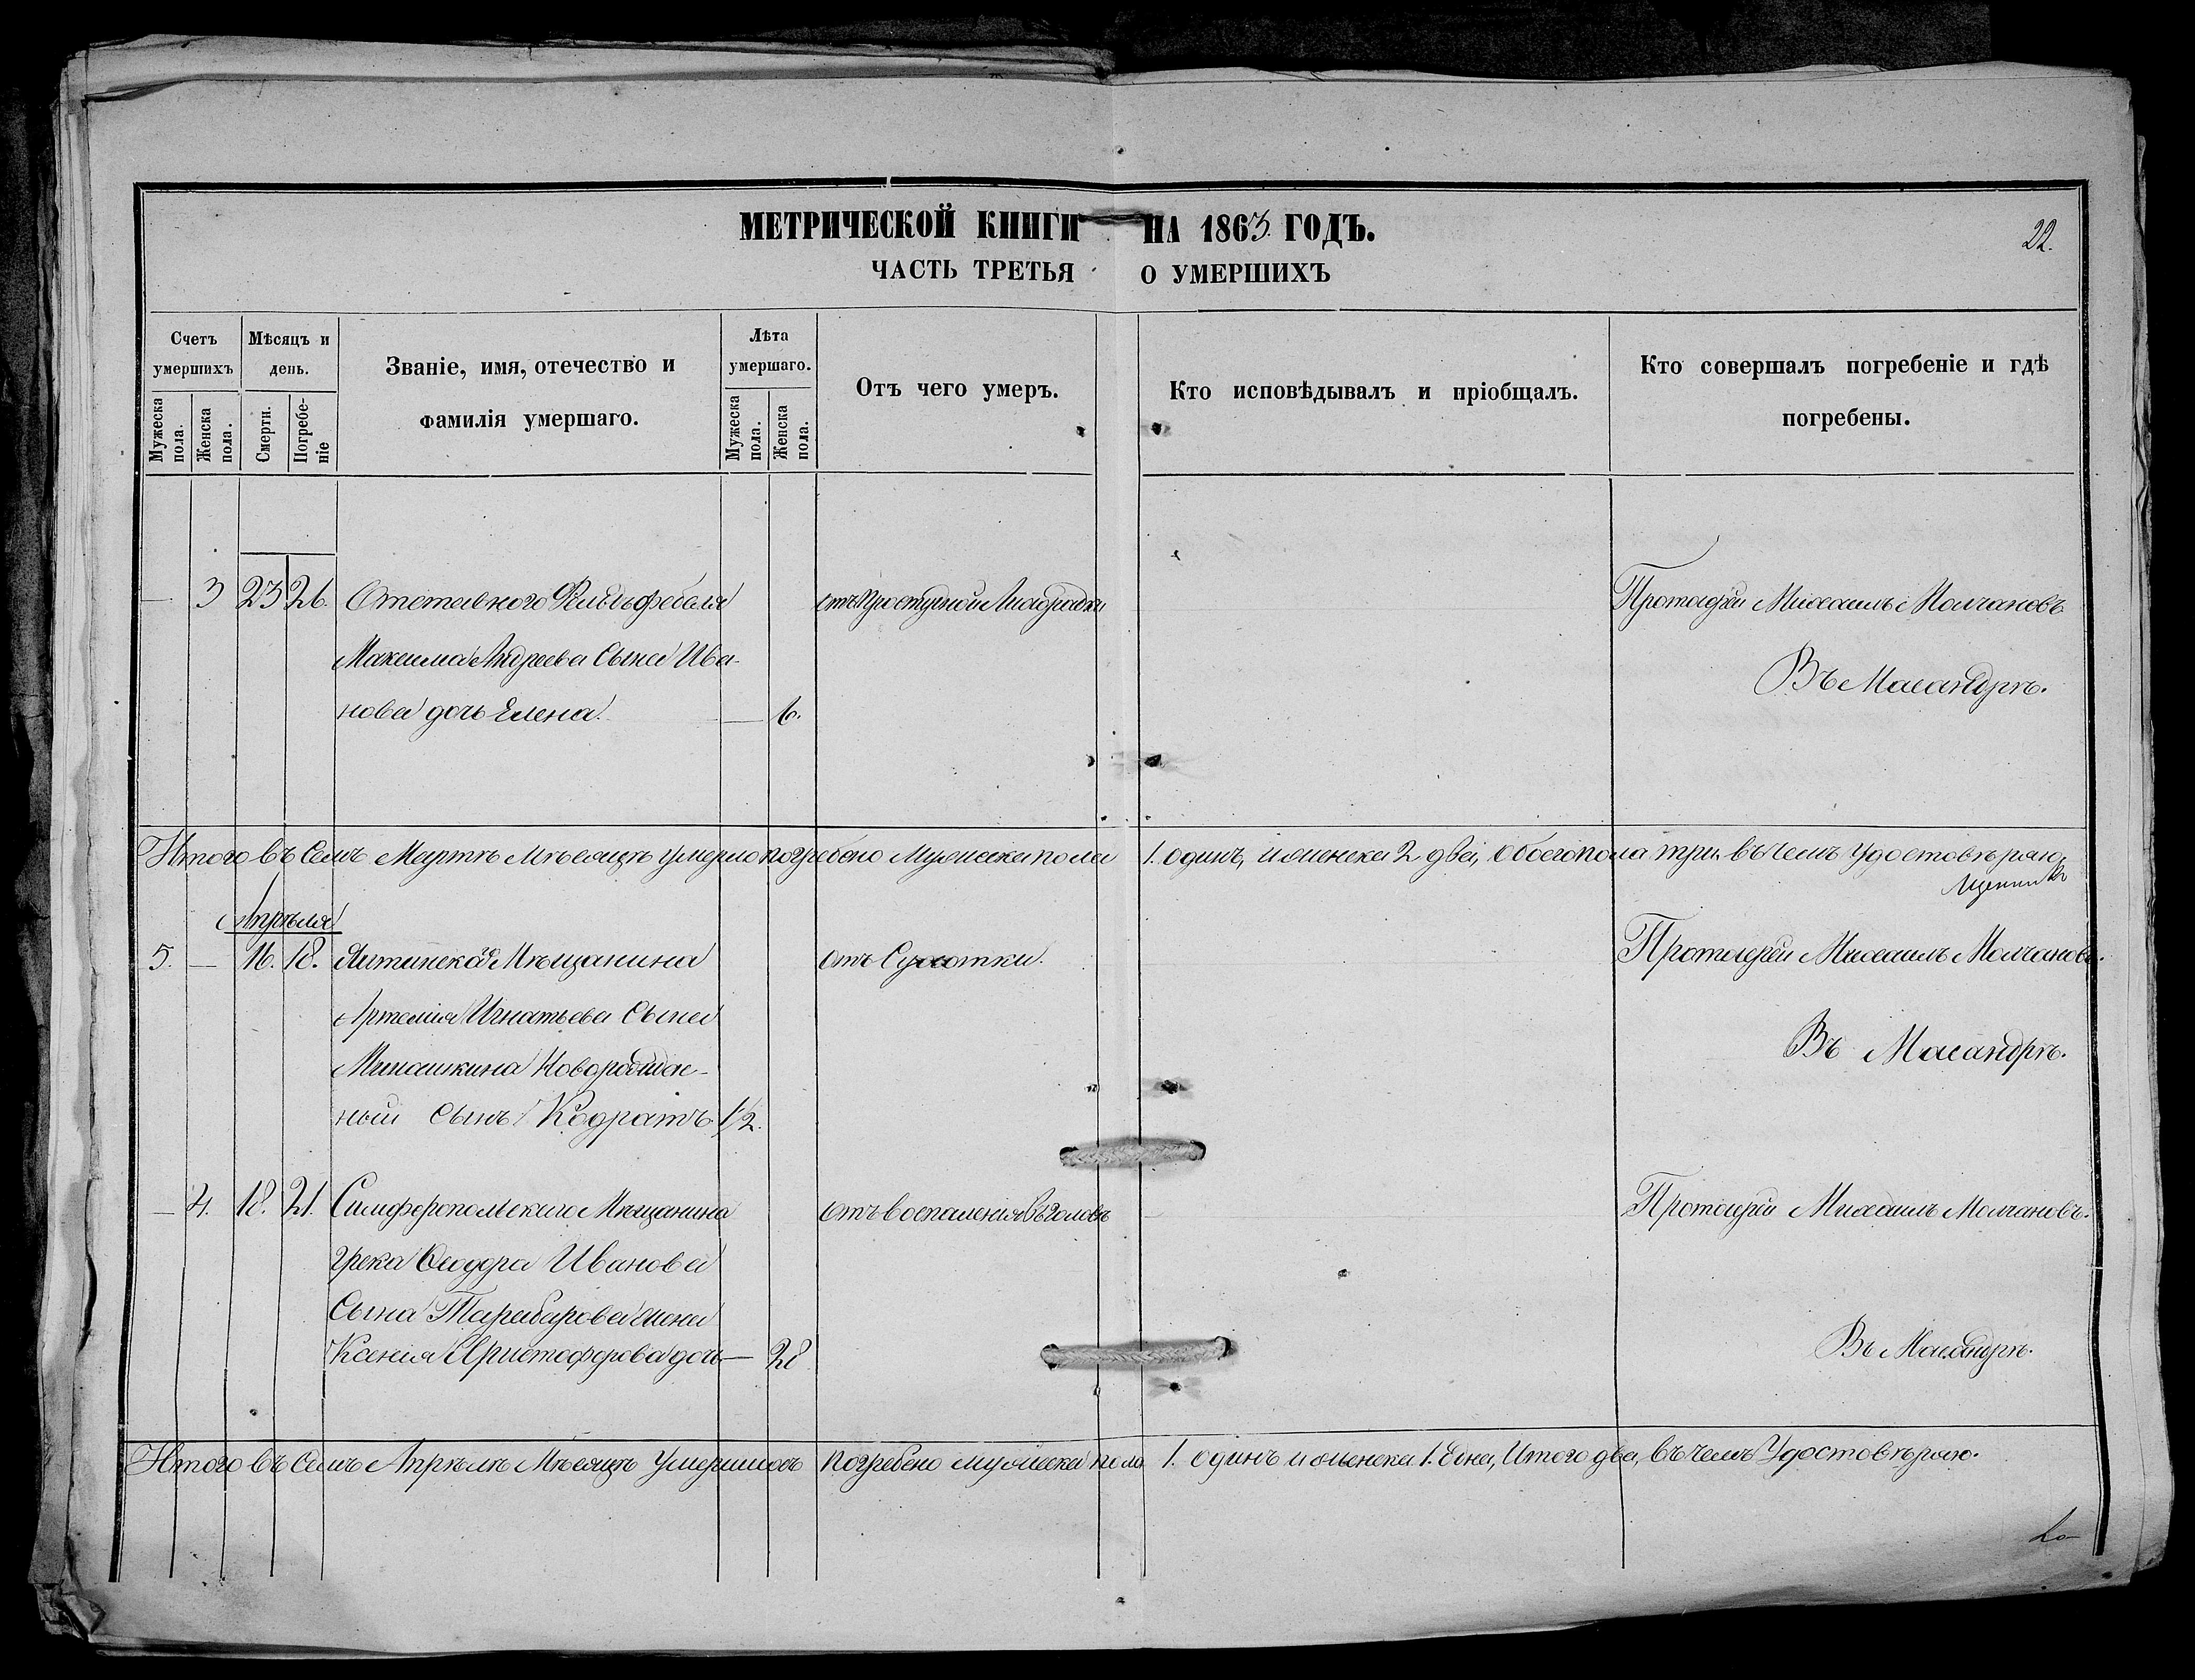 МЕТРИЧЕСКОЙ КНИГИ НА 1863 ГОДЪ.
22.
ЧАСТЬ ТРЕТЬЯ О УМЕРШИХЪ
Счетъ умершихъ
Мужеска пола.
Женска пола.
Мѣсяцъ и день.
Смерти.
Погребеніе
Званіе, имя, отечество и фамилія умершаго.
Лѣта умершаго.
Мужеска пола.
Женска пола.
Отъ чего умеръ.
Кто исповѣдывалъ и пріобщалъ.
Кто совершалъ погребеніе и гдѣ погребены.
— 3 23 26. Отставнаго Фельдфебеля отъ простудной Лихорадки Протоіерей Михаилъ Молчановъ
Максима Андреева Сына Ива-
Въ Масандрѣ.
нова дочь Елена. — 6.
Итого въ семъ Мартѣ Мѣсяцѣ умерло погребено Мужеска пола 1. одинъ, и женска 2 двѣ, обоего пола три. въ чемъ удостовѣряю.
Апрѣля
5. — 16. 18. Ялтинскаго Мѣщанина отъ Сухотки. Протоіерей Михаилъ Молчановъ.
Артемія Игнатьева Сына
Въ Масандрѣ.
Минашкина Новорожден-
ный сынъ Кодратъ 1/2.
— 4. 18. 21. Симферопольскаго Мѣщанина отъ воспаленія въ головѣ — Протоіерей Михаилъ Молчановъ.
грека Ѳеодора Иванова
Сына Тарабарова жена
Ксенія Христофорова дочь — 28
Въ Масандрѣ.
Итого въ семъ Апрѣлѣ Мѣсяцѣ Умершихъ погребено мужеска пола 1. одинъ и женска 1. одна, Итого два, въ чемъ Удостовѣряю.